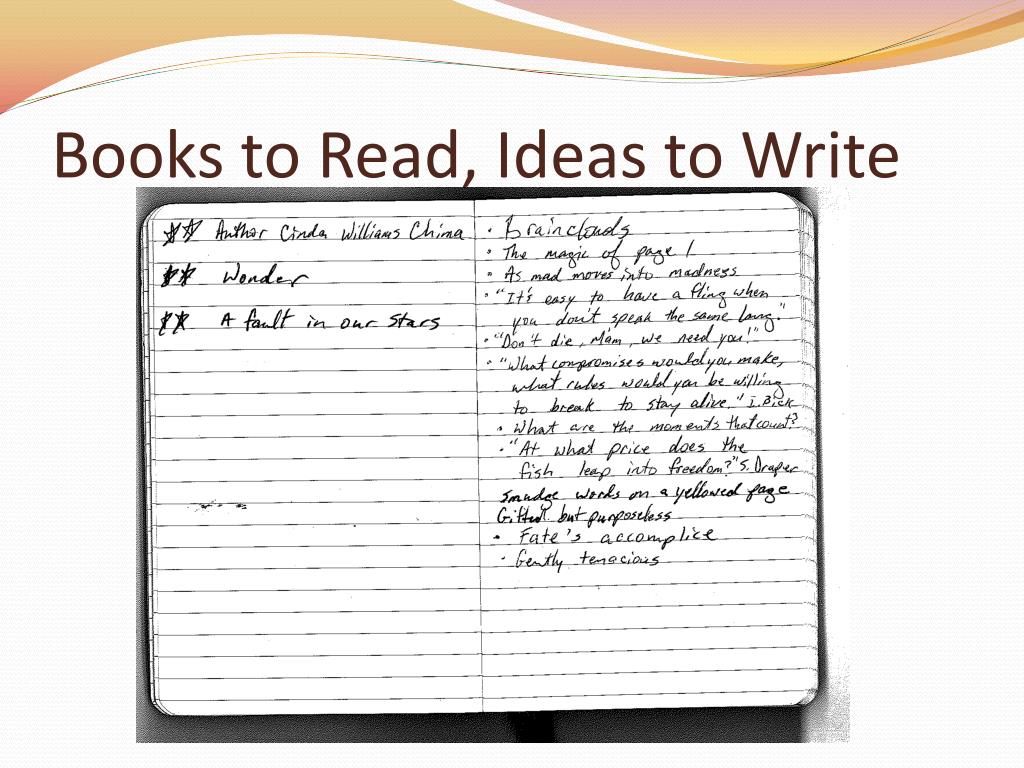 Books to Read, Ideas to Write
Author Cinda Williams Chima
Wonder
A fault in our stars
· Brainclouds
· The magic of page 1
· As mad moves into madness
· "It's easy to have a fling when
you don't speak the same lang."
· "Don't die, Mam, we need you!"
· "What compromises would you make,
what rules would you be willing
to break to stay alive." I. Bick
· What are the moments that count?
· "At what price does the
fish leap into freedom?" S. Draper
smudge works on a yellowed page
Gifted but purposeless
· Fate's accomplice
· Gently tenacious